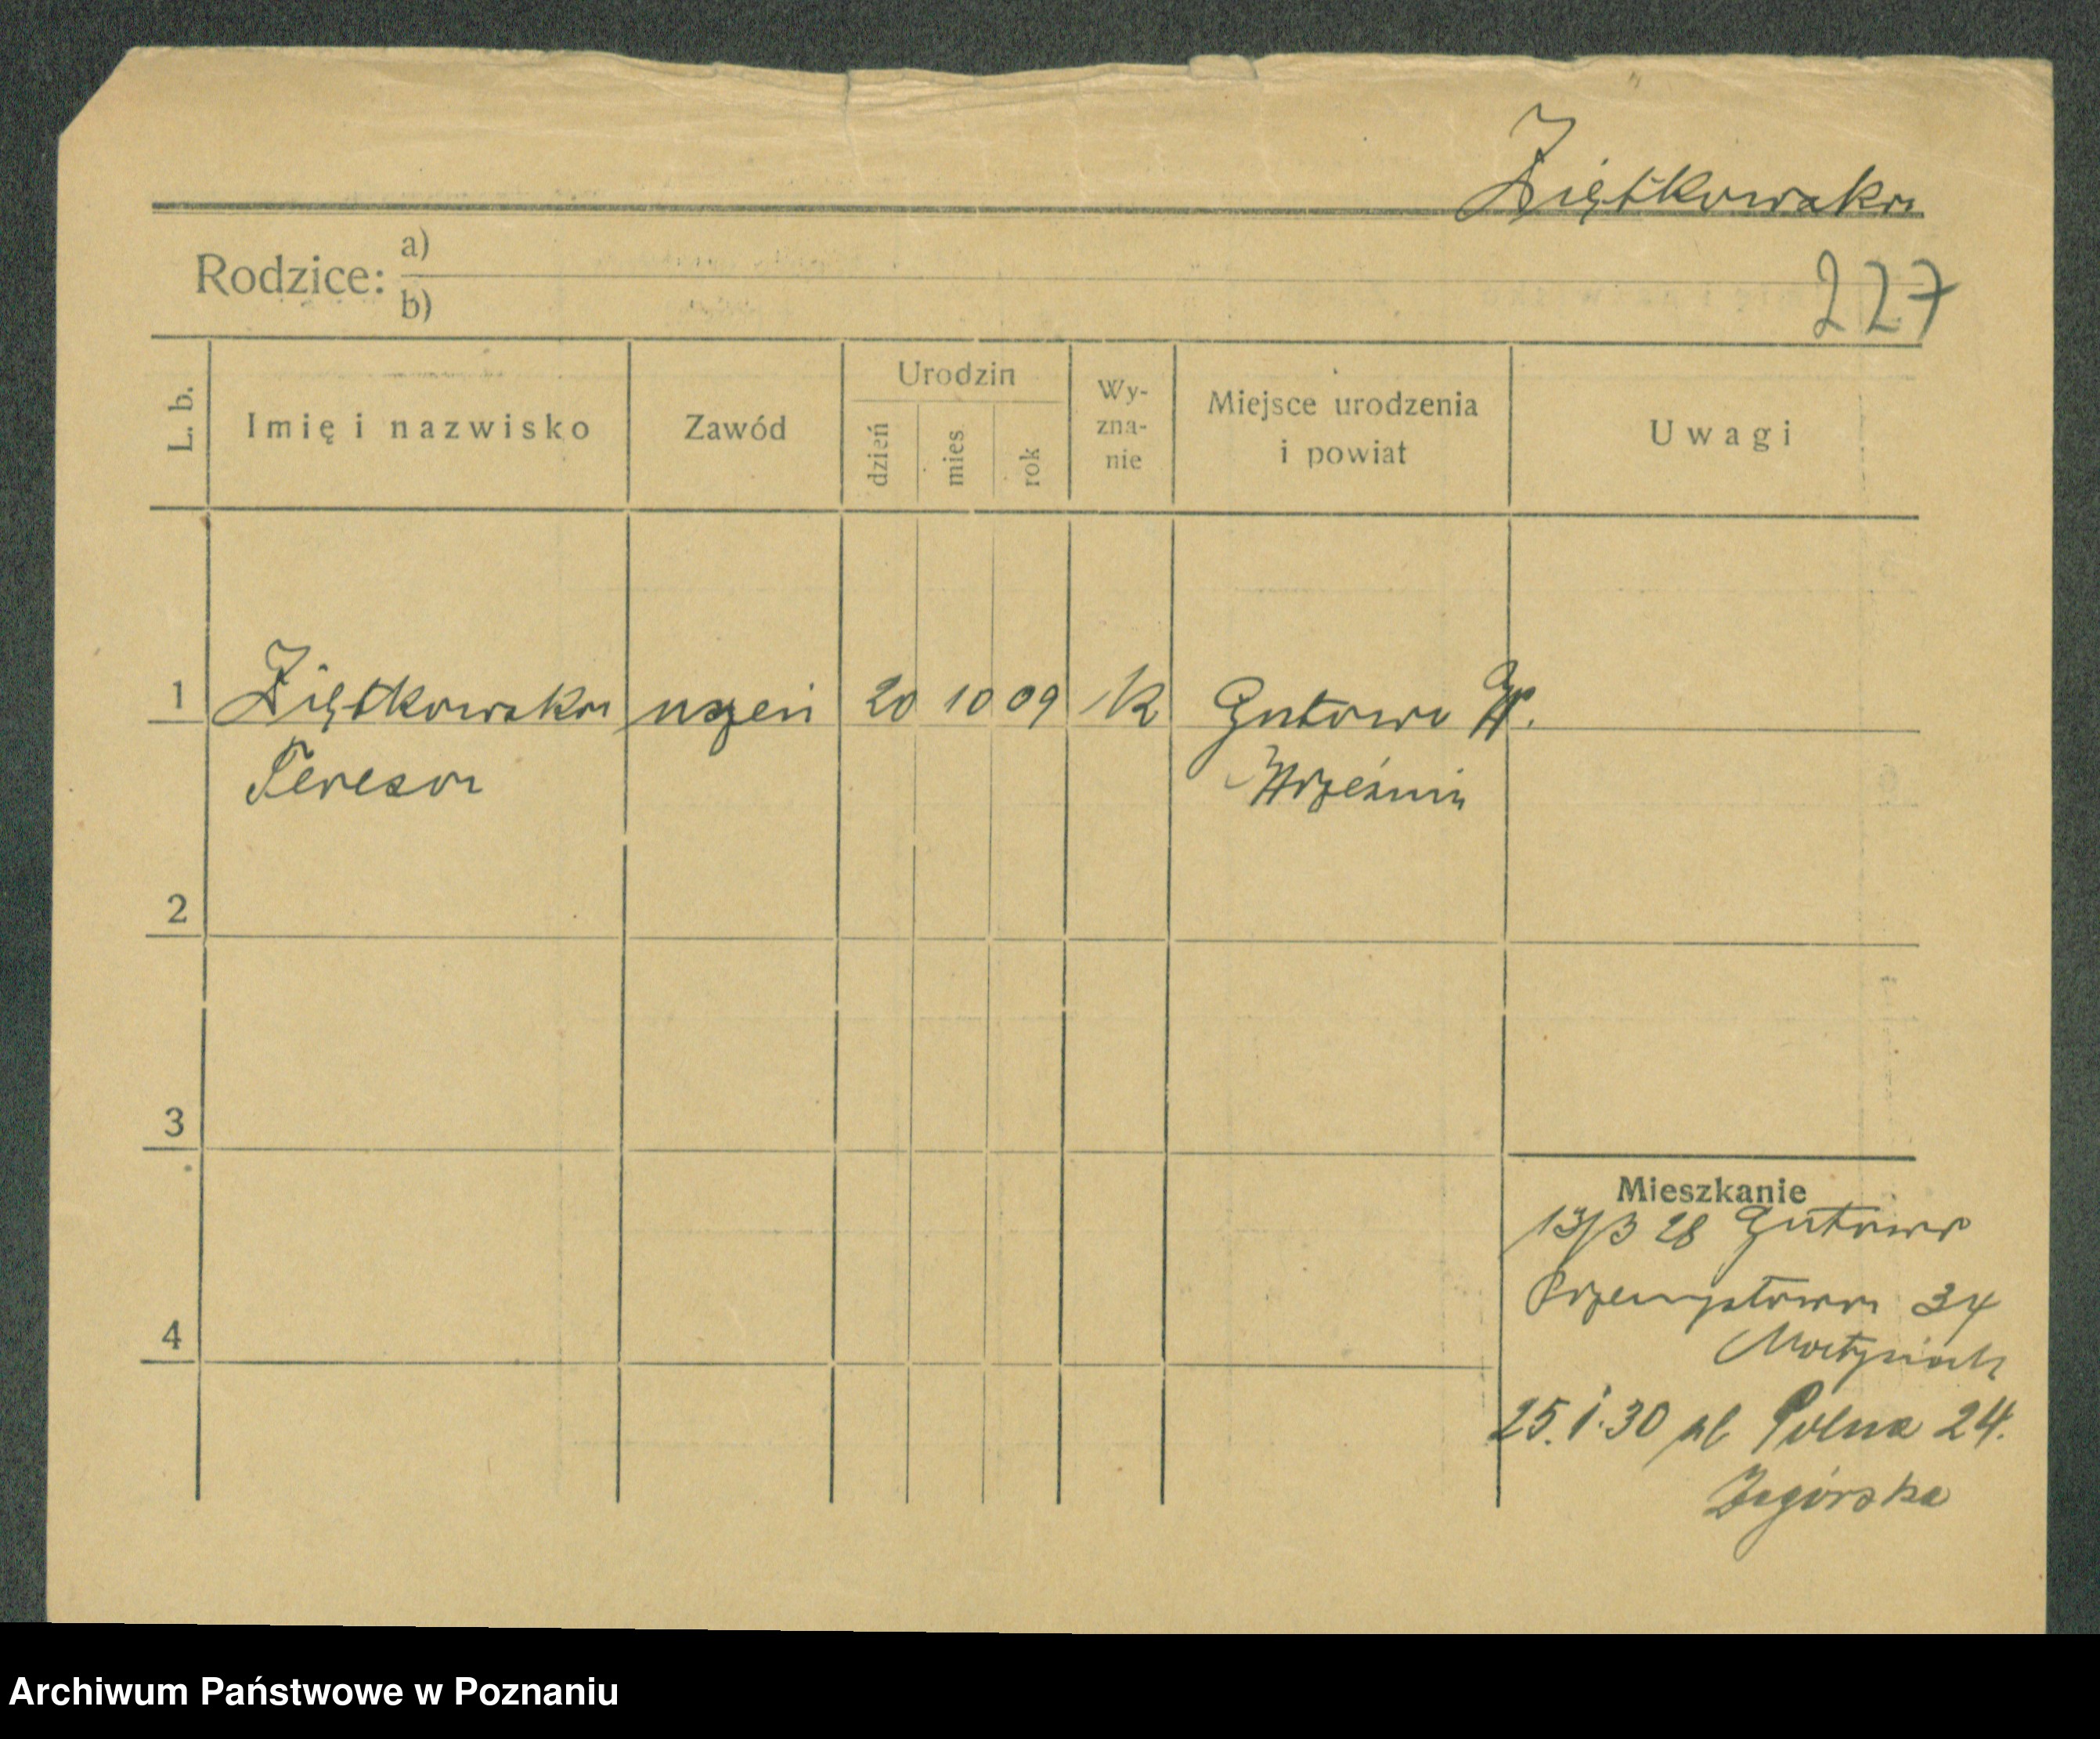 Ziętkowska
Rodzice: a)
b)
227
L. b.
Imię i nazwisko
Zawód
Urodzin
dzień
mies
rok
Wy-
zna-
nie
Miejsce urodzenia
i powiat
Uwagi
1 Ziętkowska uczen 20 10 09 k Gutowo W.
Teresa Września
2
3
4
Mieszkanie
13/3 28 Gutowo
Przemysłowa 34
25.1.30 Polna 24.
Zagórska
Archiwum Państwowe w Poznaniu